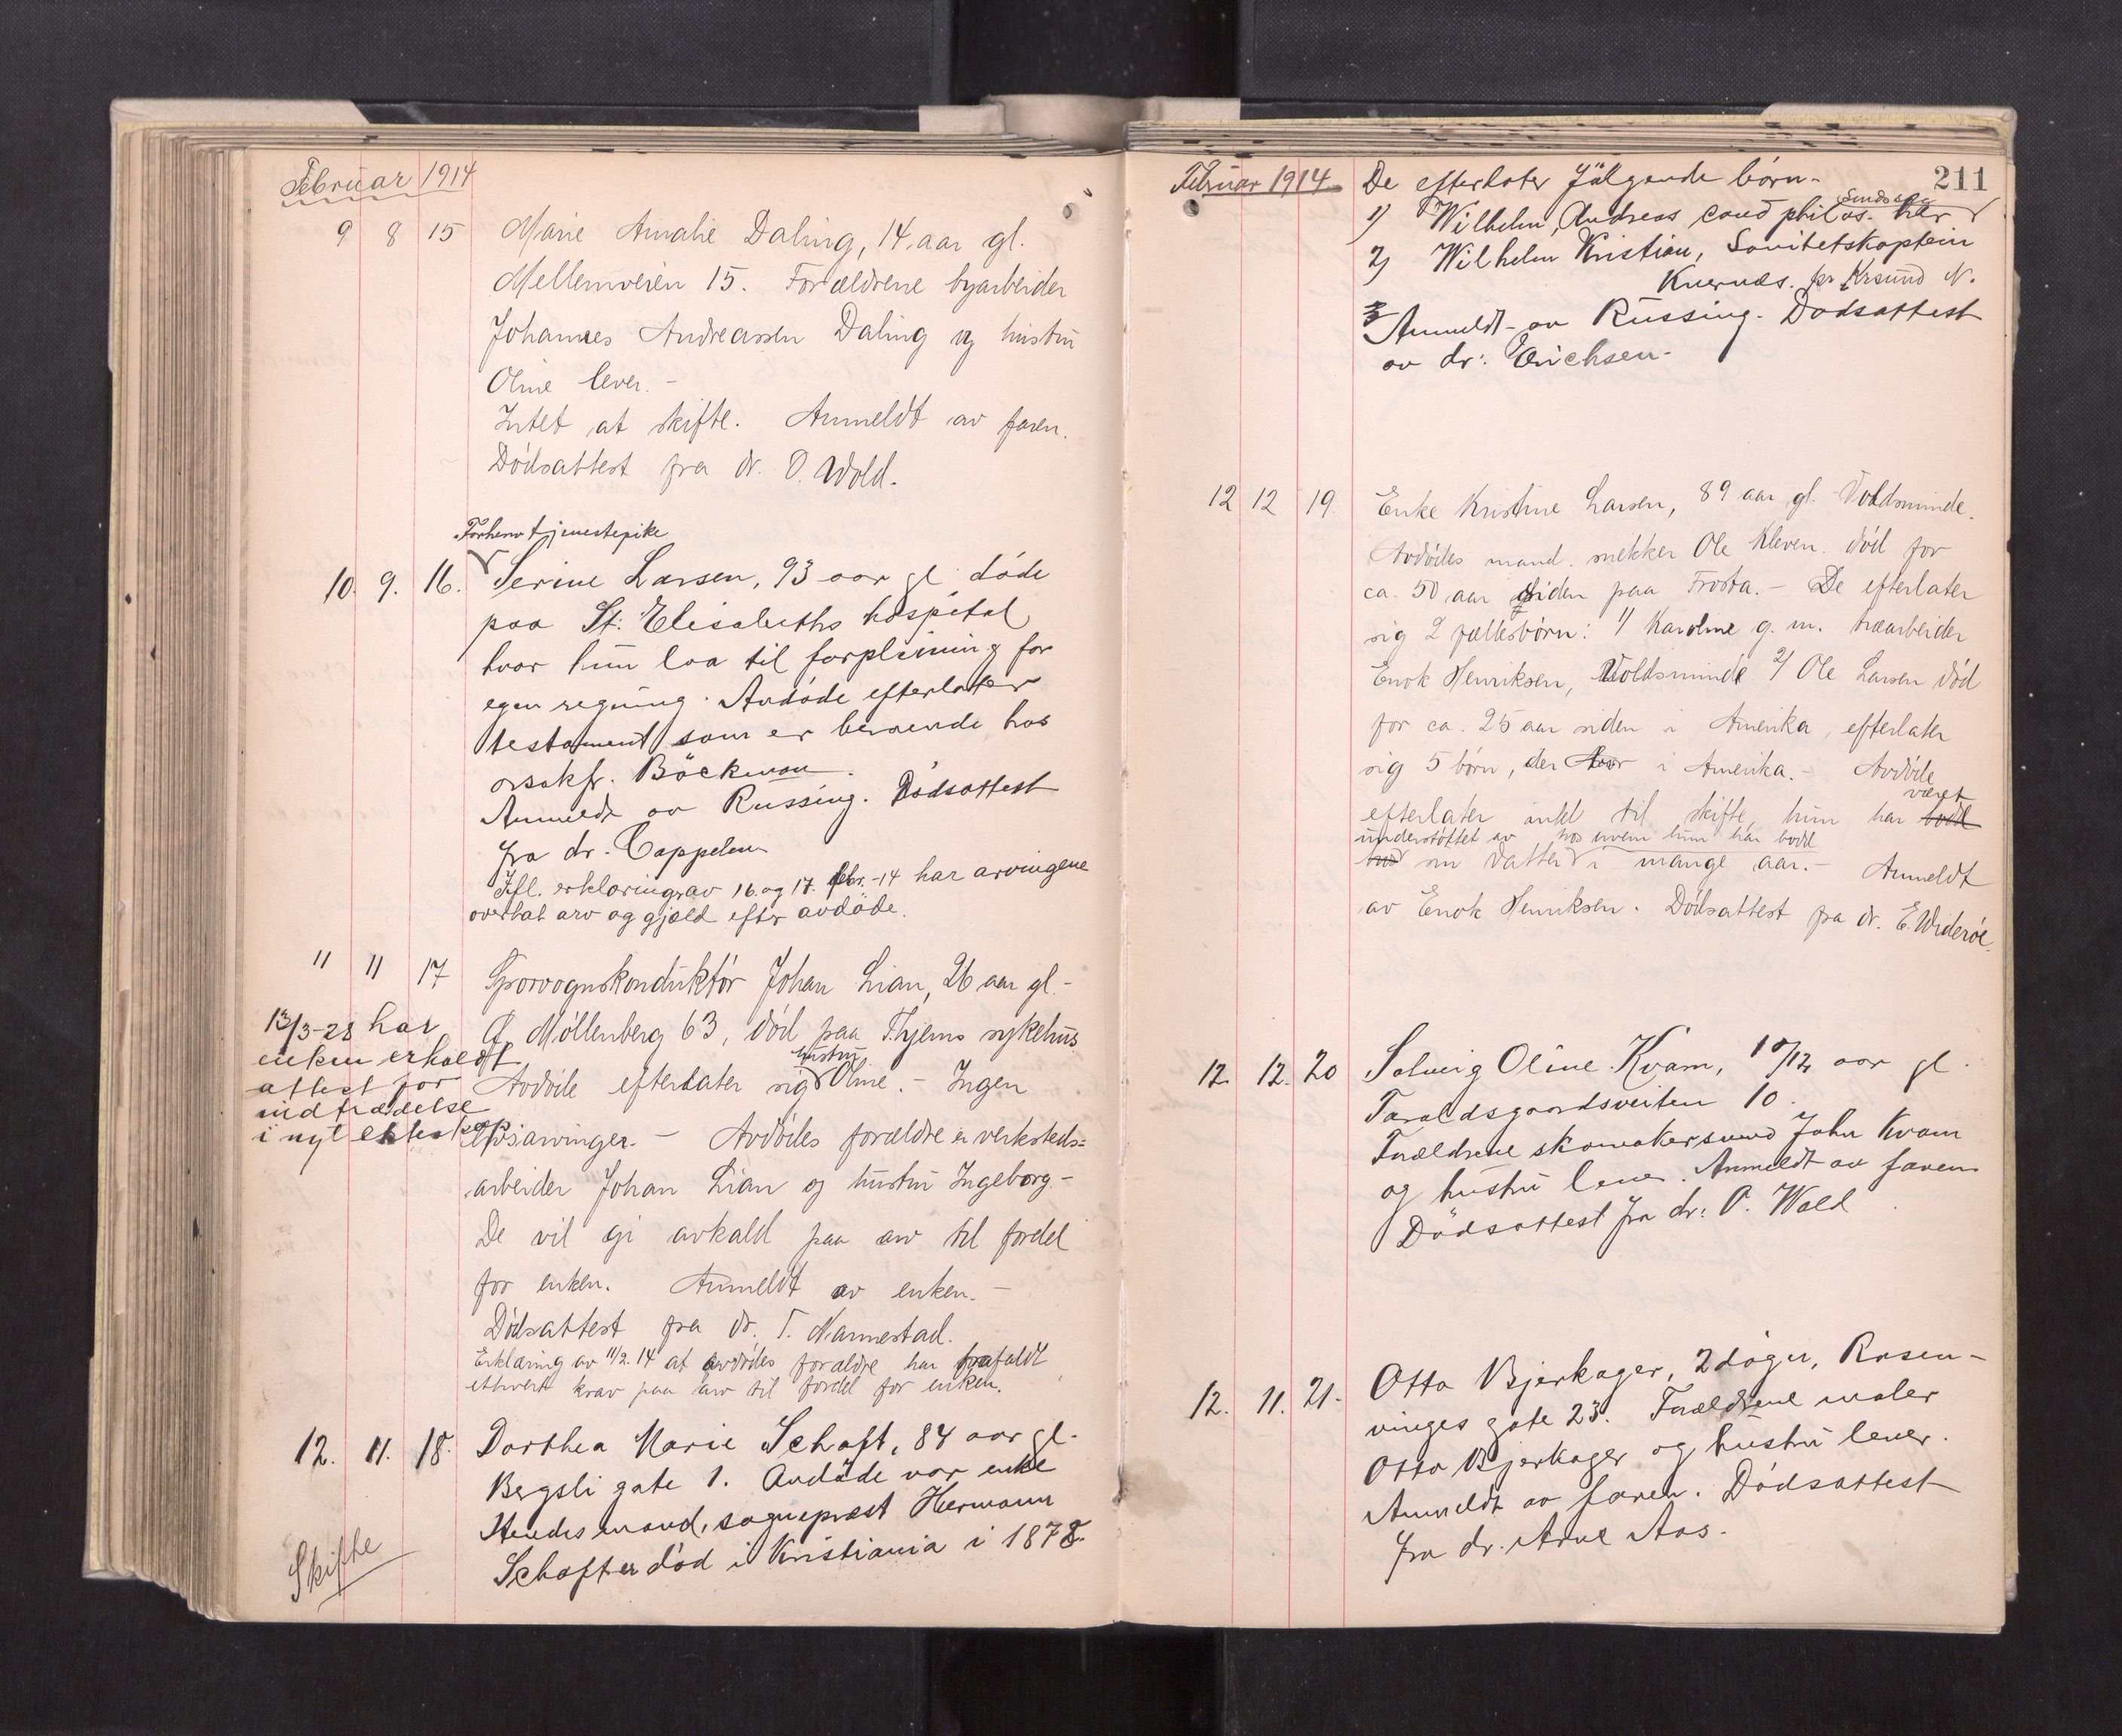 Februar 1914
9 8 15 Marie Amalie Daling, 14 aar gl.
Mellemveien 15. Forældrene byarbeider
Johannes Andreassen Daling og hustru
Oline lever. -
Intet at skifte. Anmeldt av faren.
Dödsattest fra dr. O. Wold.
Forhenv tjenestepike
10. 9. 16. Serine Larsen, 93 aar gl döde
paa St. Elisabeths hospital
hvor hun laa til forpleining for
egen regning. Avdöde efterlater
testament som er beroende hos
orsakfr. Böckman.
Anmeldt av Russing. Dödsattest
fra dr. Cappelen
Ifl. erklæring av 16. og 17. febr. -14 har arvingene
overtat arv og gjæld efter avdöde.
11 11 17 Sporvognskonduktör Johan Lian, 26 aar gl. -
13/3-28 har
enken erholdt
attest for
indtrædelse
i nyt ekteskap
Ö. Möllenberg 63, död paa Thjems sykehus
hustru
Avdöde efterlater sig Oline. - Ingen
livsarvinger. - Avdödes forældre er verksteds=
arbeider Johan Lian og hustru Ingeborg. -
De vil gi avkald paa arv til fordel
for enken. Anmeldt av enken. -
Dödsattest fra dr. T. Nannestad.
Erklæring av 11/2. 14 at avdödes forældre har frafaldt
ethvert krav paa arv til fordel for enken.
12. 11. 18. Dorthea Marie Schaft, 84 aar gl.
Bergsli gate 1. Avdöde var enke
Hendes mand, sogneprest Hermann
Schaft er död i Kristiania i 1878.
Skifte
Februar 1914. De efterlater fölgende börn -
211
1) Wilhelm, Andreas cand philos. her
2) Wilhelm Kristian, Sanitetskaptein
Kvernes. pr Krsund N.
Anmeldt av Russing. Dödsattest
av dr. Erichsen.
12 12 19. Enke Kristine Larsen, 89 aar gl. Voldsminde.
Avdödes mand snekker Ole Kleven död for
ca. 50 aar siden paa Frosta. - De efterlater
sig 2 fællesbörn: 1/ Karoline g. m. træarbeider
Enok Henriksen, Voldsminde 2/ Ole Larsen död
for ca. 25 aar siden i Amerika, efterlater
sig 5 börn, der bor i Amerika. - Avdöde
været
efterlater intet til skifte, hun har bodd
understöttet av hos hvem hun har bodd
hos sin datter i mange aar. - Anmeldt
av Enok Henriksen. Dödsattest fra dr. E. Wideröe.
12. 12. 20 Solveig Oline Kvam, 10/12 aar gl.
Taraldsgaardsveiten 10.
Forældrene skomakersvend John Kvam
og hustru lever. Anmeldt av faren
Dödsattest fra dr. O. Wold
12. 11. 21. Otto Bjerkager, 2 döger, Rosen-
vinges gate 23. Forældrene maler
Otto Bjerkager og hustru lever.
Anmeldt av faren. Dödsattest
fra dr. Arne Aas.